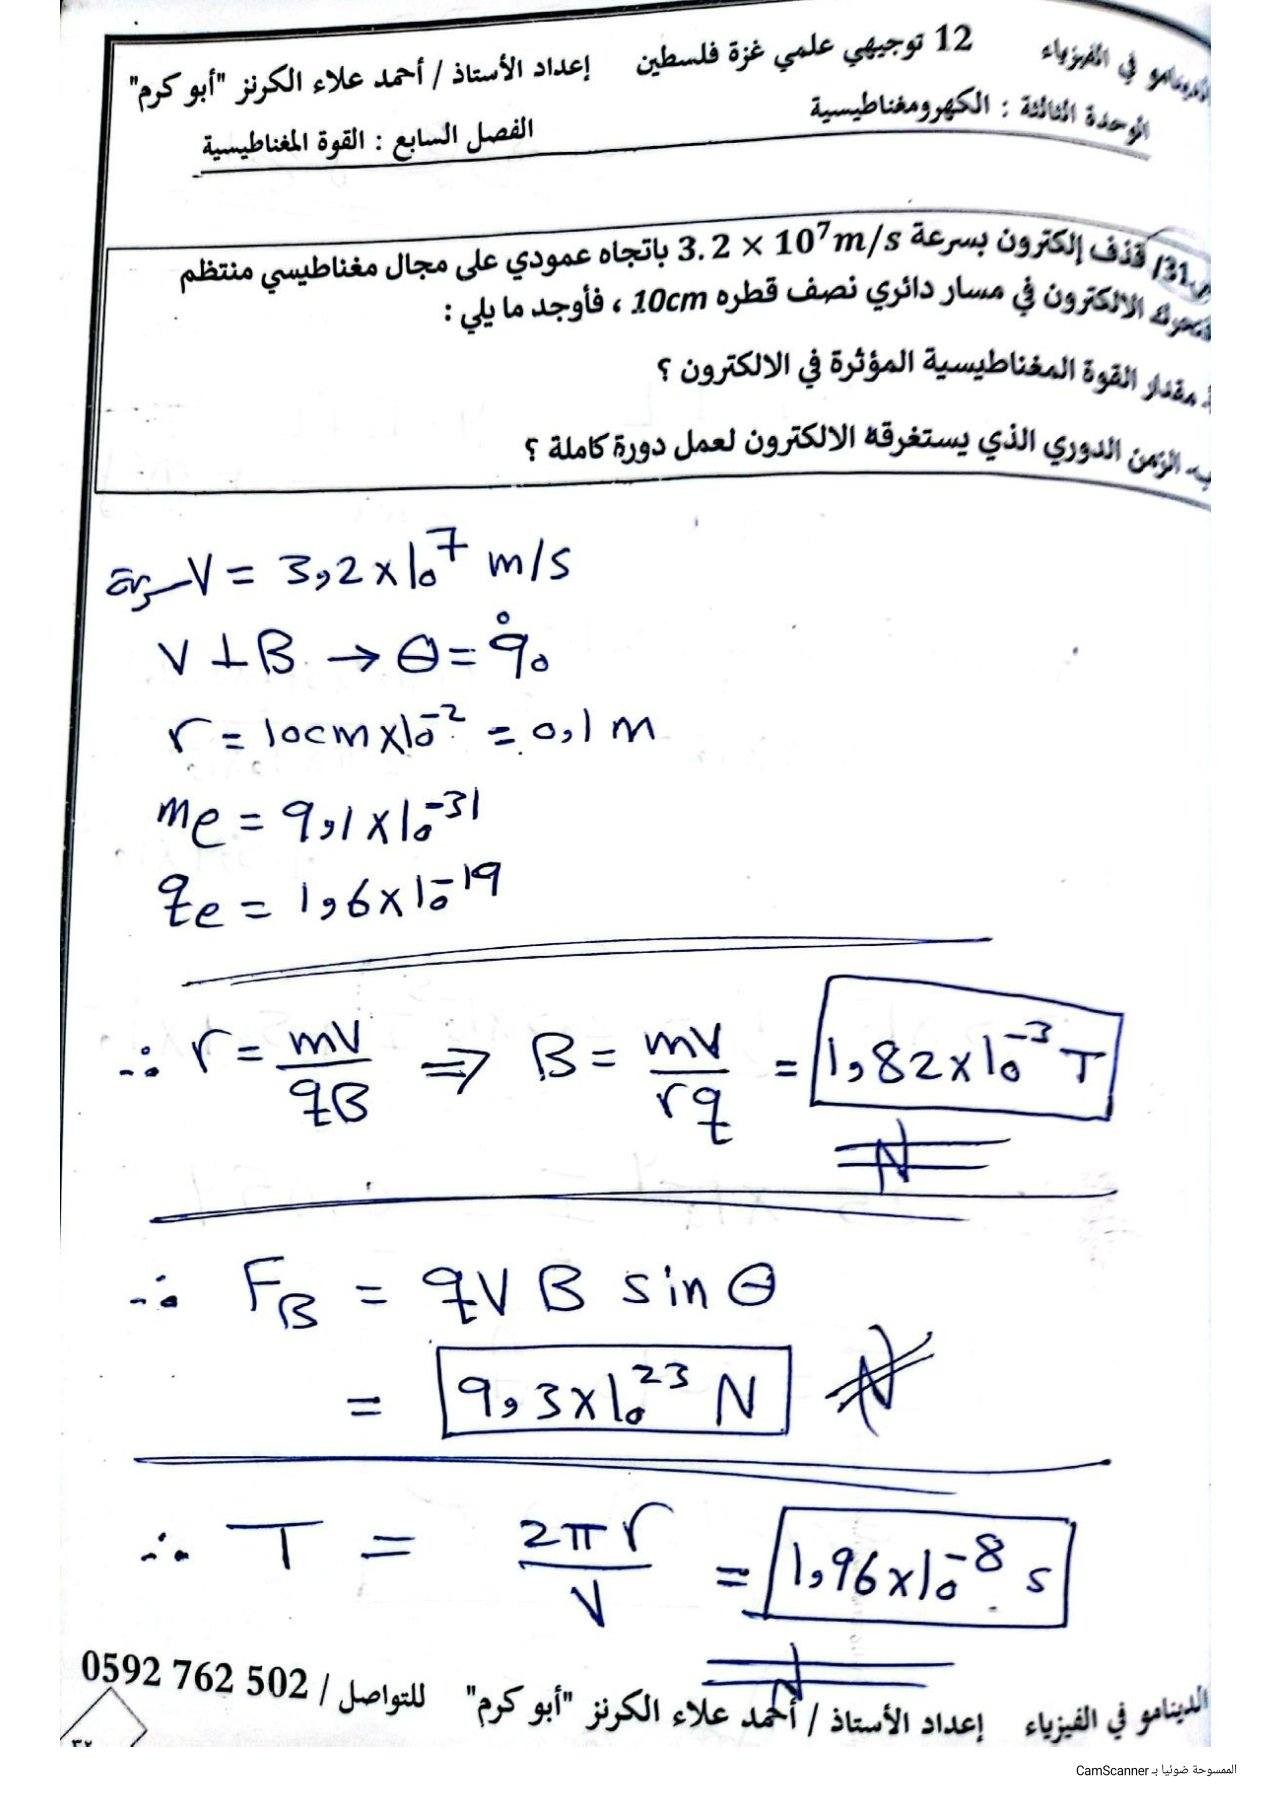 الدينامو في الفيزياء 12 توجيهي علمي غزة فلسطين إعداد الأستاذ / أحمد علاء الكرنز "أبو كرم"
الوحدة الثالثة : الكهرومغناطيسية الفصل السابع : القوة المغناطيسية
س31/ قذف إلكترون بسرعة 3.2 × 10⁷m/s باتجاه عمودي على مجال مغناطيسي منتظم
فتحرك الالكترون في مسار دائري نصف قطره 10cm ، فأوجد ما يلي :
أ- مقدار القوة المغناطيسية المؤثرة في الالكترون ؟
ب- الزمن الدوري الذي يستغرقه الالكترون لعمل دورة كاملة ؟
سرعة V = 3,2×10⁷ m/s
V ⊥ B → θ = 90°
r = 10cm×10⁻² = 0,1 m
me = 9,1×10⁻³¹
qe = 1,6×10⁻¹⁹
∴ r = mv/qB ⇒ B = mv/rq = 1,82×10⁻³ T
∴ F_B = qVB sin θ
= 9,3×10²³ N
∴ T = 2πr/V = 1,96×10⁻⁸ s
الدينامو في الفيزياء إعداد الأستاذ / أحمد علاء الكرنز "أبو كرم" للتواصل / 0592 762 502
٣٢
الممسوحة ضوئيا بـ CamScanner